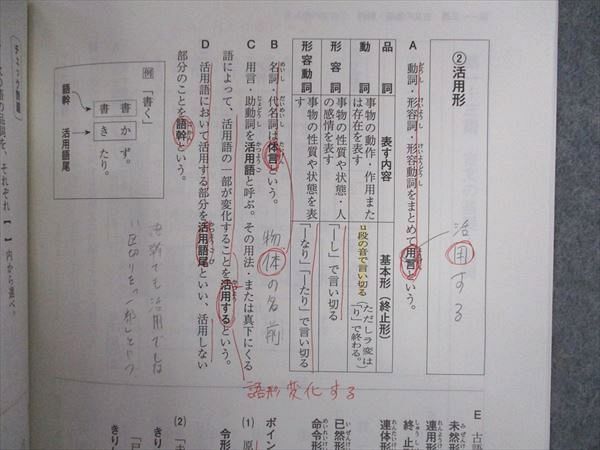 ② 活用形
活用する
A 動詞・形容詞・形容動詞をまとめて用言という。
品詞 表す内容 基本形（終止形）
動詞 事物の動作・作用または存在を表す u段の音で言い切る（ただしラ変は「り」で終わる。）
形容詞 事物の性質や状態・人の感情を表す 「―し」で言い切る
形容動詞 事物の性質や状態を表す 「―なり」「―たり」で言い切る
B 名詞・代名詞は体言という。
物体の名前
C 用言・助動詞を活用語と呼ぶ。その用法・または真下にくる
語によって、活用語の一部が変化することを活用するという。
語形変化する
D 活用語において活用する部分を活用語尾といい、活用しない
部分のことを語幹という。
例 「書く」
書か ず。
書き たり。
語幹
活用語尾
チェック問題
それぞれ【 】内から選べ。
E 古語
未然形
連用形
終止形
連体形
已然形
命令形
ポイン
(1) 原
令形
きり
(2)
きり